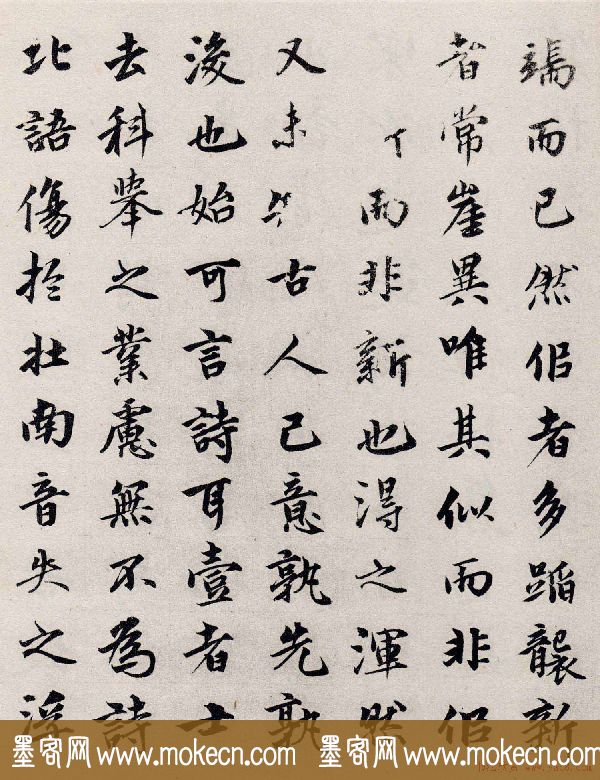 端而已然佀者多蹈襲新
者常崖異唯其似而非佀
而非新也得之渾然
又未古人己意孰先孰
後也始可言詩耳壹者士
去科舉之業慮無不為詩
北語傷於壯南音失之浮
墨客网 www.mokecn.com 墨客网 www.mokecn.com